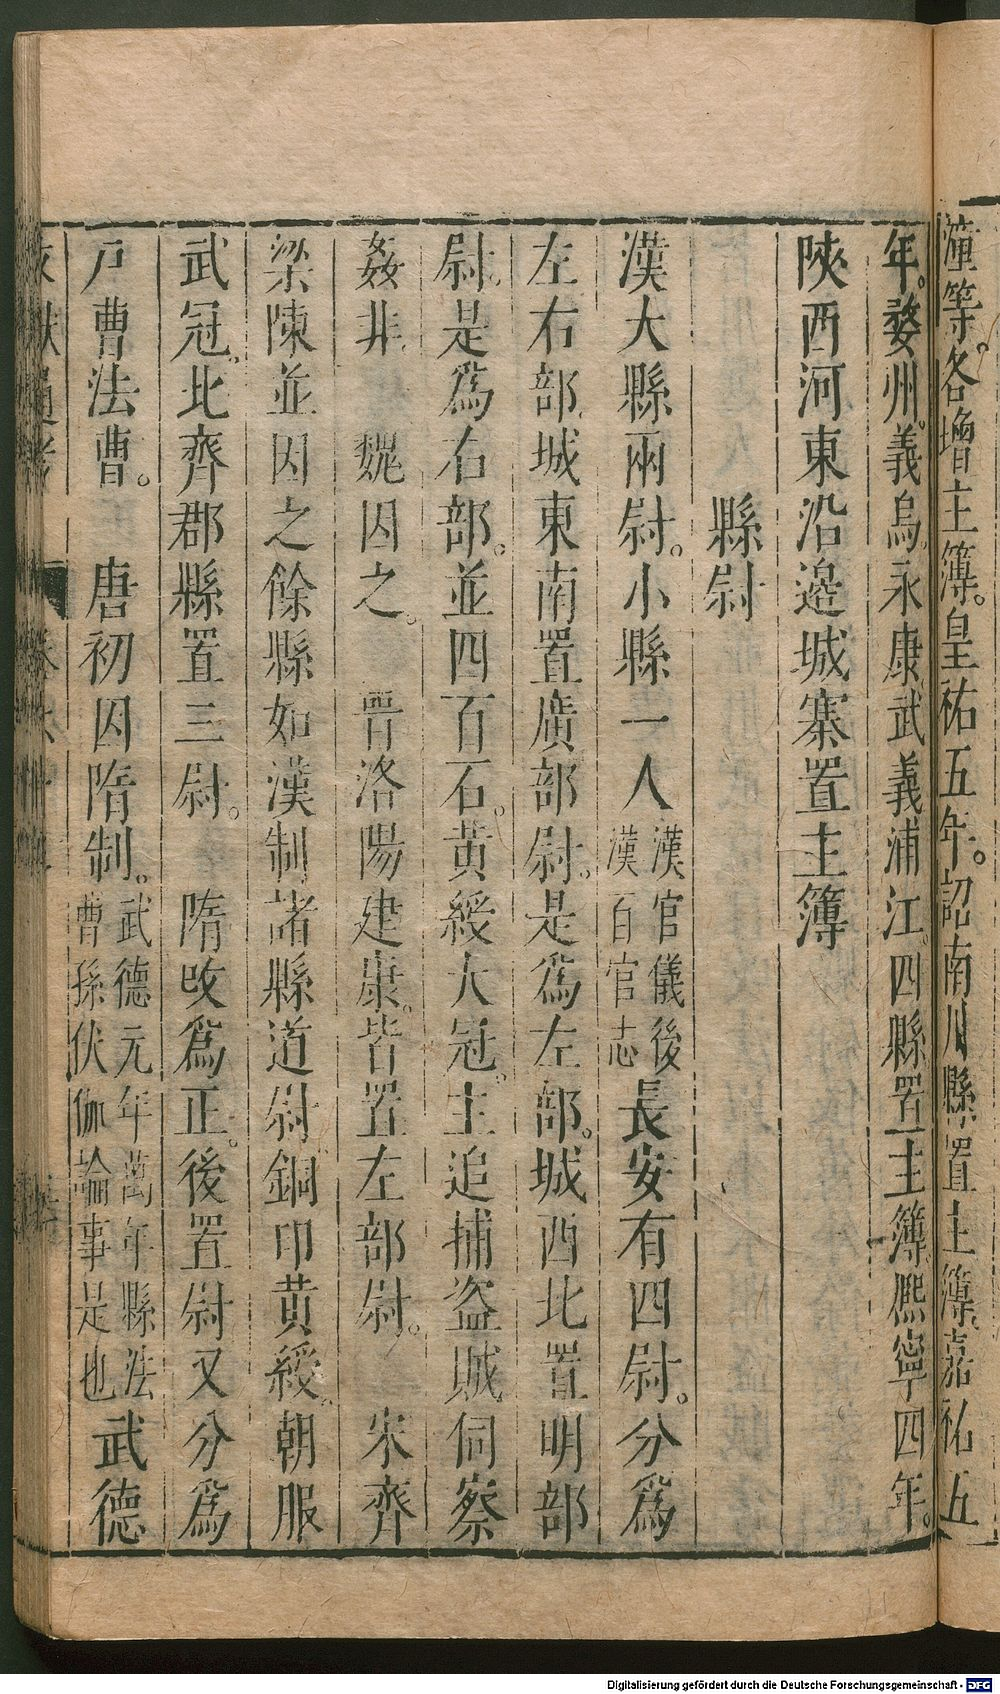 潼等。各增主簿。皇祐五年。詔南川縣置主簿。嘉祐五
年。婺州。義烏。永康武義浦江。四縣置主簿熙寧四年。
陝西河東沿邉城寨置主簿
縣尉
漢大縣兩尉。小縣一人漢官儀後漢百官志長安有四尉。分爲
左右部城東南置廣部尉。是爲左部。城西北置明部
尉。是爲右部。並四百石。黃綬大冠。主追捕盜賊伺察
姦非 魏因之。 晉洛陽建康。皆置左部尉。 宋齊
梁陳並因之餘縣如漢制諸縣道尉銅印黃綬。朝服
武冠。北齊郡縣置三尉。 隋改爲正。後置尉又分爲
戶曹法曹。 唐初因隋制。武德元年萬年縣法曹孫伏伽論事是也武德
Digitalisierung gefördert durch die Deutsche Forschungsgemeinschaft - DFG